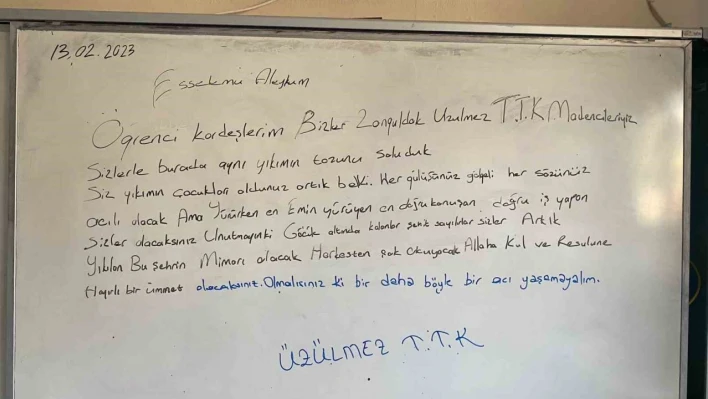 13.02.2023
Esselemü Aleyküm
Öğrenci kardeşlerim Bizler Zonguldak Üzülmez T.T.K Madencileriyiz
Sizlerle burada aynı yıkımın tozunu soluduk
Siz yıkımın çocukları oldunuz artık belki. Her gülüşünüz gölgeli her sözünüz
acılı olacak Ama Yürürken en Emin yürüyen en doğru konuşan doğru iş yapan
Sizler olacaksınız Unutmayınki Göçük altında kalanlar şehit sayılırlar sizler Artık
Yıkılan Bu şehrin Mimarı olacak Herkesten çok okuyacak Allaha Kul ve Resulune
Hayırlı bir ümmet olacaksınız. Olmalısınız ki bir daha böyle bir acı yaşamayalım.
ÜZÜLMEZ T.T.K